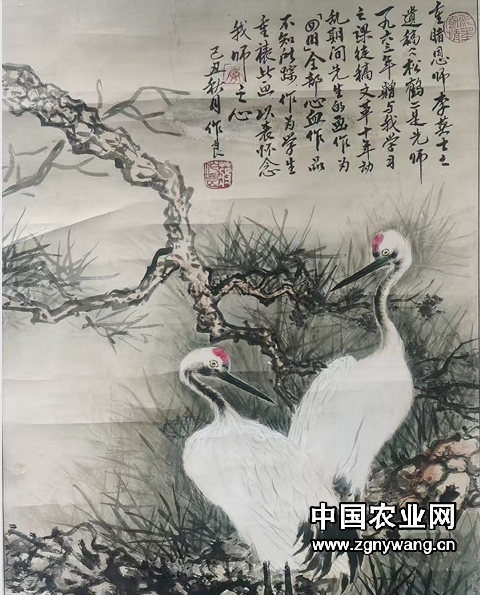 重睹恩师李英士之
遗稿《松鹤》是先师
一九六三年赠与我学习
之课徒稿文革十年动
乱期间先生的画作为
“四旧”全部心血作品
不知所踪作为学生
重裱此画以表怀念
我师之心
己丑秋月作良
中国农业网
www.zgnywang.cn